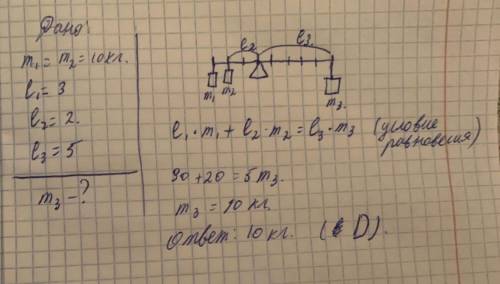 Дано:
m₁ = m₂ = 10 кг.
l₁ = 3
l₂ = 2.
l₃ = 5
m₃ - ?
l₂ l₃
m₁ m₂ m₃.
l₁ · m₁ + l₂ · m₂ = l₃ · m₃ (условие
равновесия)
30 + 20 = 5 m₃.
m₃ = 10 кг.
Ответ: 10 кг. (D).